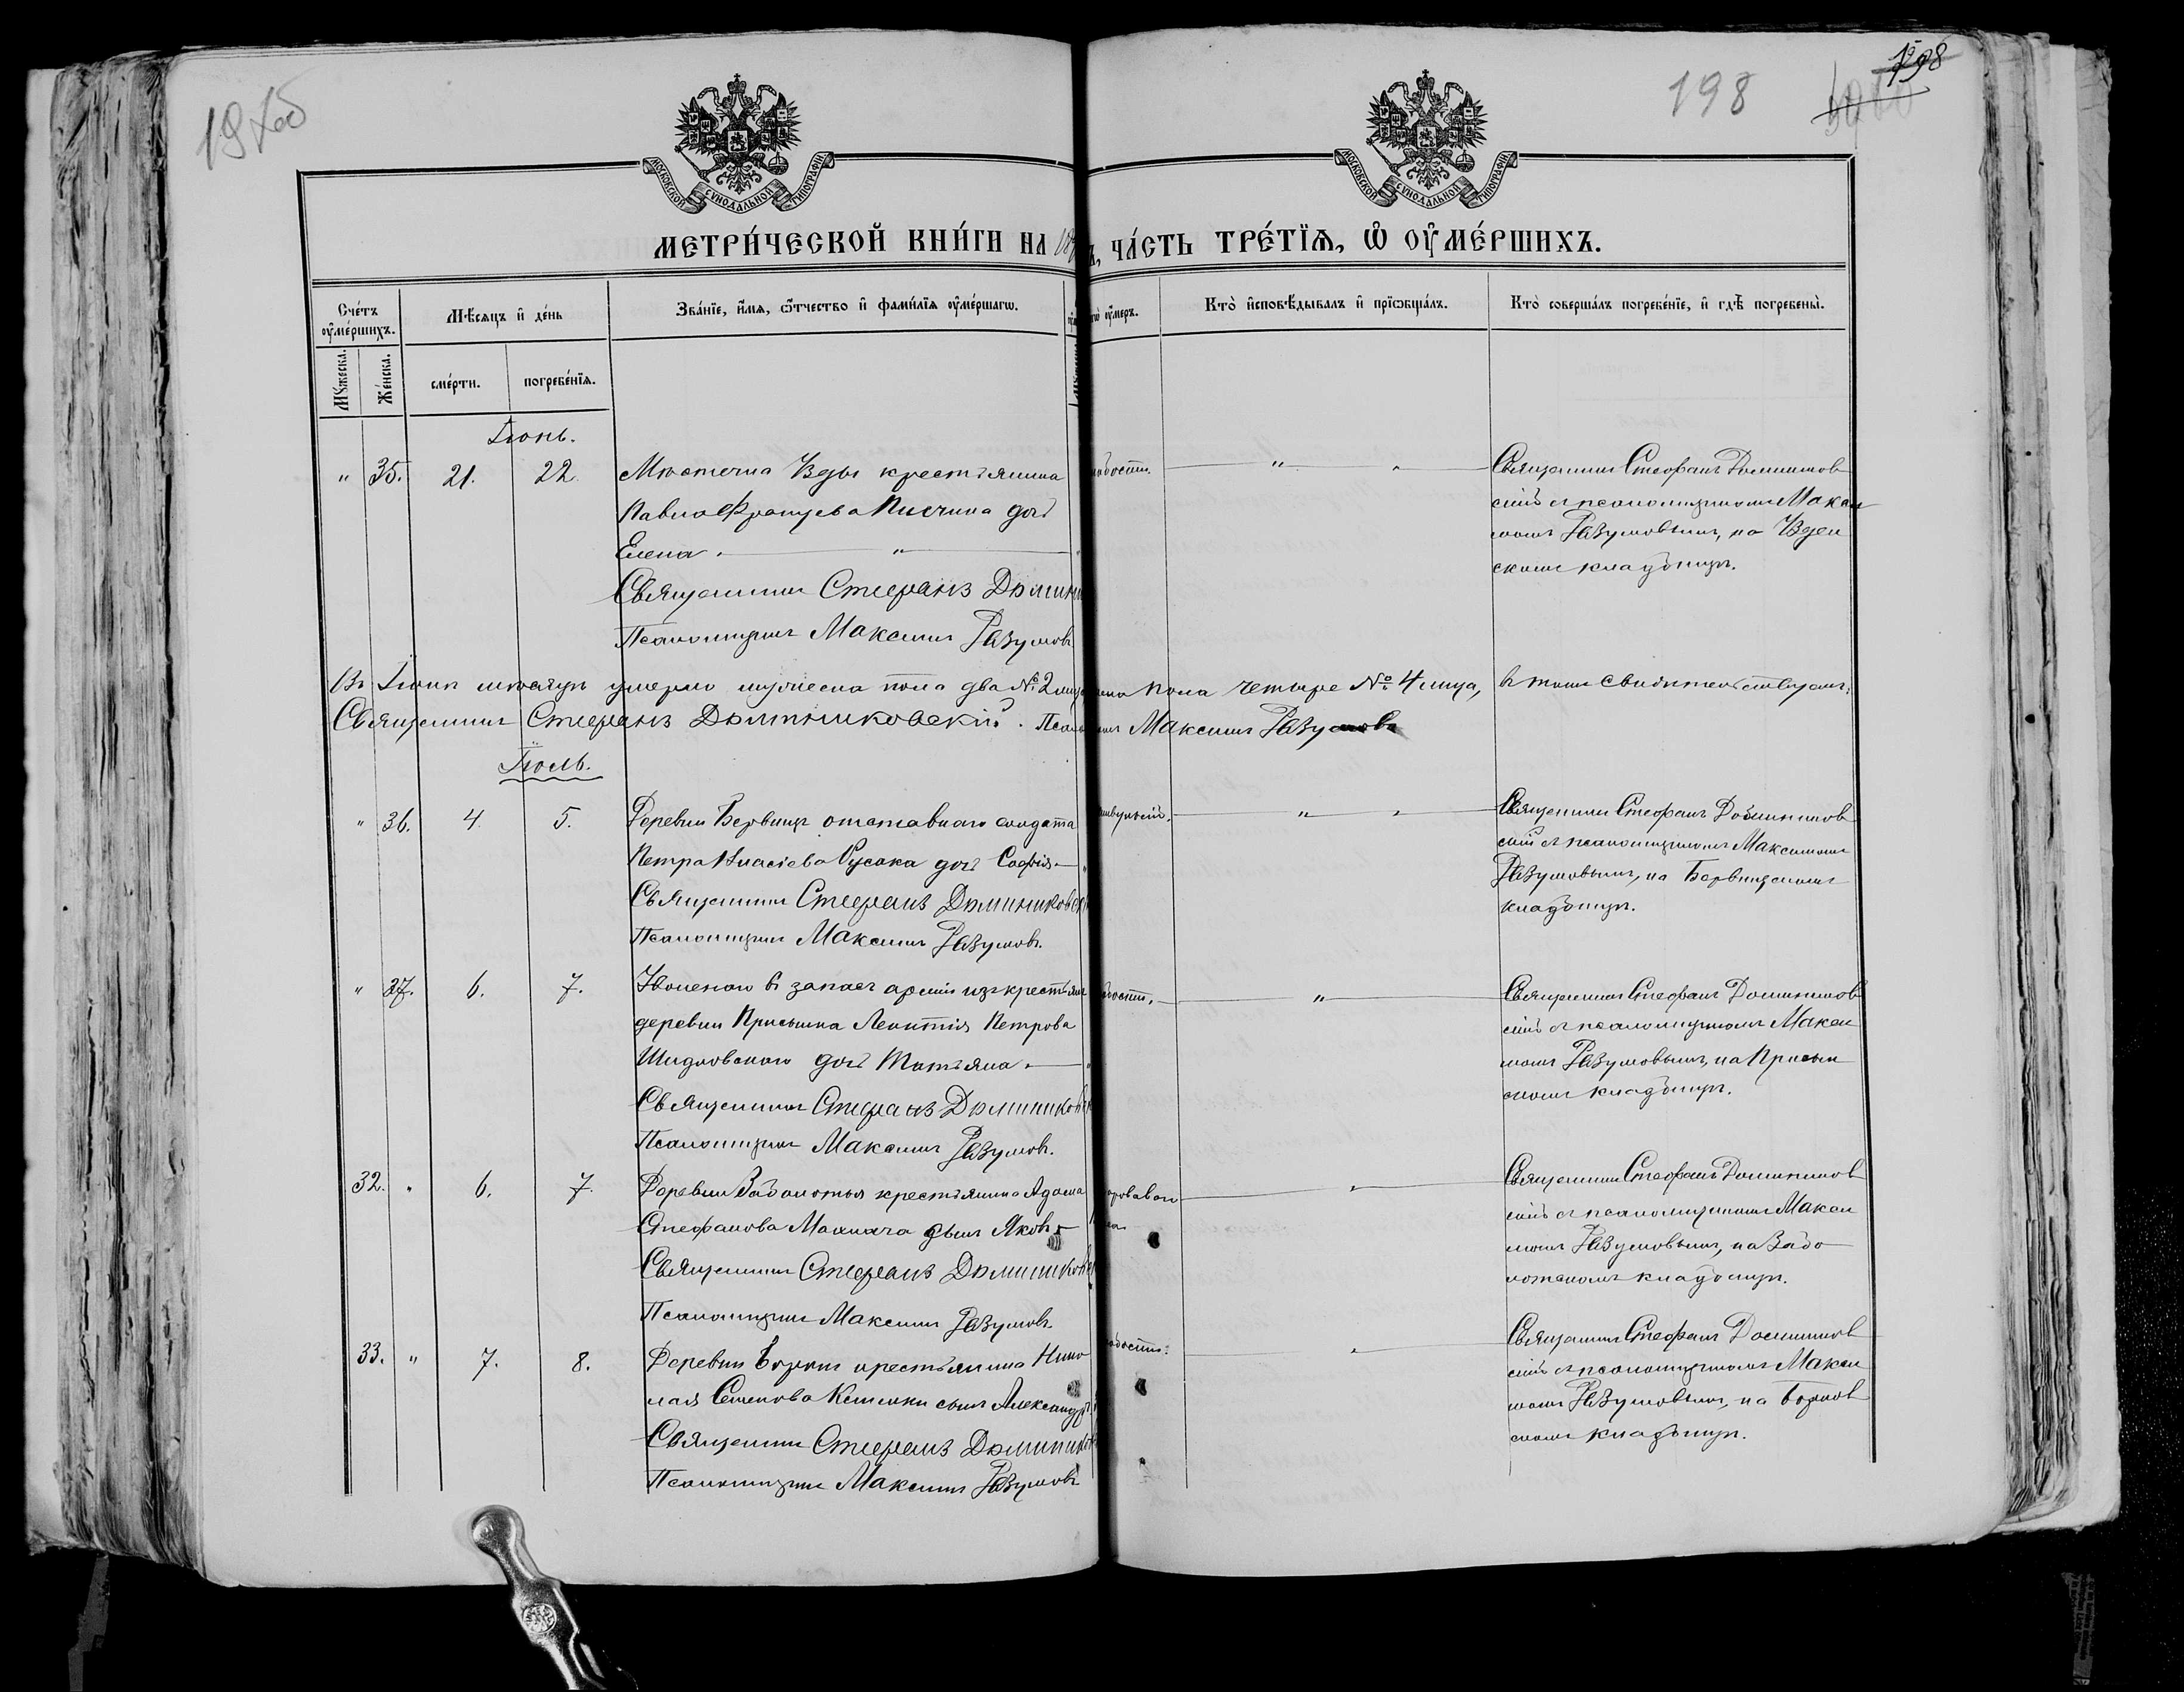 198
198
МОСКОВСКОЙ СѴНОДАЛЬНОЙ ТИПОГРАФІИ
МОСКОВСКОЙ СѴНОДАЛЬНОЙ ТИПОГРАФІИ
МЕТРИ́ЧЕСКОЙ КНИ́ГИ НА 18 , ЧА́СТЬ ТРЕ́ТЇѦ, Ѽ ОУ҆МЕ́РШИХЪ.
Сче́тъ оу҆ме́ршихъ.
Мѣ́сяцъ и҆ де́нь
Зва́нїе, и҆́мѧ, ѻ҆́тчество и҆ фами́лїѧ оу҆ме́ршагѡ.
оу҆́меръ.
Кто̀ и҆сповѣ́дывалъ и҆ прїѡбща́лъ.
Кто̀ соверша́лъ погребе́нїе, и҆ гдѣ̀ погребены̀.
Мꙋ́жеска.
Же́нска.
сме́рти.
погребе́нїѧ.
Іюнь.
" 35. 21. 22. Мѣстечка Узды крестьянина
Павла Францева дочь
Елена. "
Священникъ Стефанъ Домини
Псаломщикъ Максимъ Разумовъ
лабости. " "
Священникъ Стефанъ Домиников
скій съ псаломщикомъ Макси
момъ Разумовымъ, на Узден
скомъ кладбищѣ.
Въ Іюнѣ мѣсяцѣ умерло мужеска пола два № 2 лица, пола четыре № 4 лица, въ томъ свидѣтельствуемъ:
Священникъ Стефанъ Доминиковскій. Максимъ Разумовъ
Іюль.
" 36. 4. 5. Деревни Борвищъ отставнаго солдата
Петра Русака дочь Софія.
Священникъ Стефанъ Доминиковск
Псаломщикъ Максимъ Разумовъ.
" "
Священникъ Стефанъ Домиников
скій съ псаломщикомъ Максимомъ
Разумовымъ, на
кладбищѣ.
" 37. 6. 7. Уволеннаго въ запасъ арміи изъ крестьянъ
деревни Присынка Леонтія Петрова
Шидловскаго дочь Татьяна.
Священникъ Стефанъ Доминиковск
Псаломщикъ Максимъ Разумовъ.
бости. "
Священникъ Стефанъ Домиников
скій съ псаломщикомъ Макси
момъ Разумовымъ, на Присын
скомъ кладбищѣ.
32. " 6. 7. Деревни Заболотья крестьянина Адама
Стефанова сынъ Яковъ
Священникъ Стефанъ Доминиковск
Псаломщикъ Максимъ Разумовъ.
"
Священникъ Стефанъ Домиников
скій съ псаломщикомъ Макси
момъ Разумовымъ, на Забо
лотскомъ кладбищѣ.
33. " 7. 8. Деревни крестьянина Нико
лая Семенова сынъ Александръ
Священникъ Стефанъ Домиников
Псаломщикъ Максимъ Разумовъ
абости. "
Священникъ Стефанъ Домиников
скій съ псаломщикомъ Макси
момъ Разумовымъ, на
скомъ кладбищѣ.